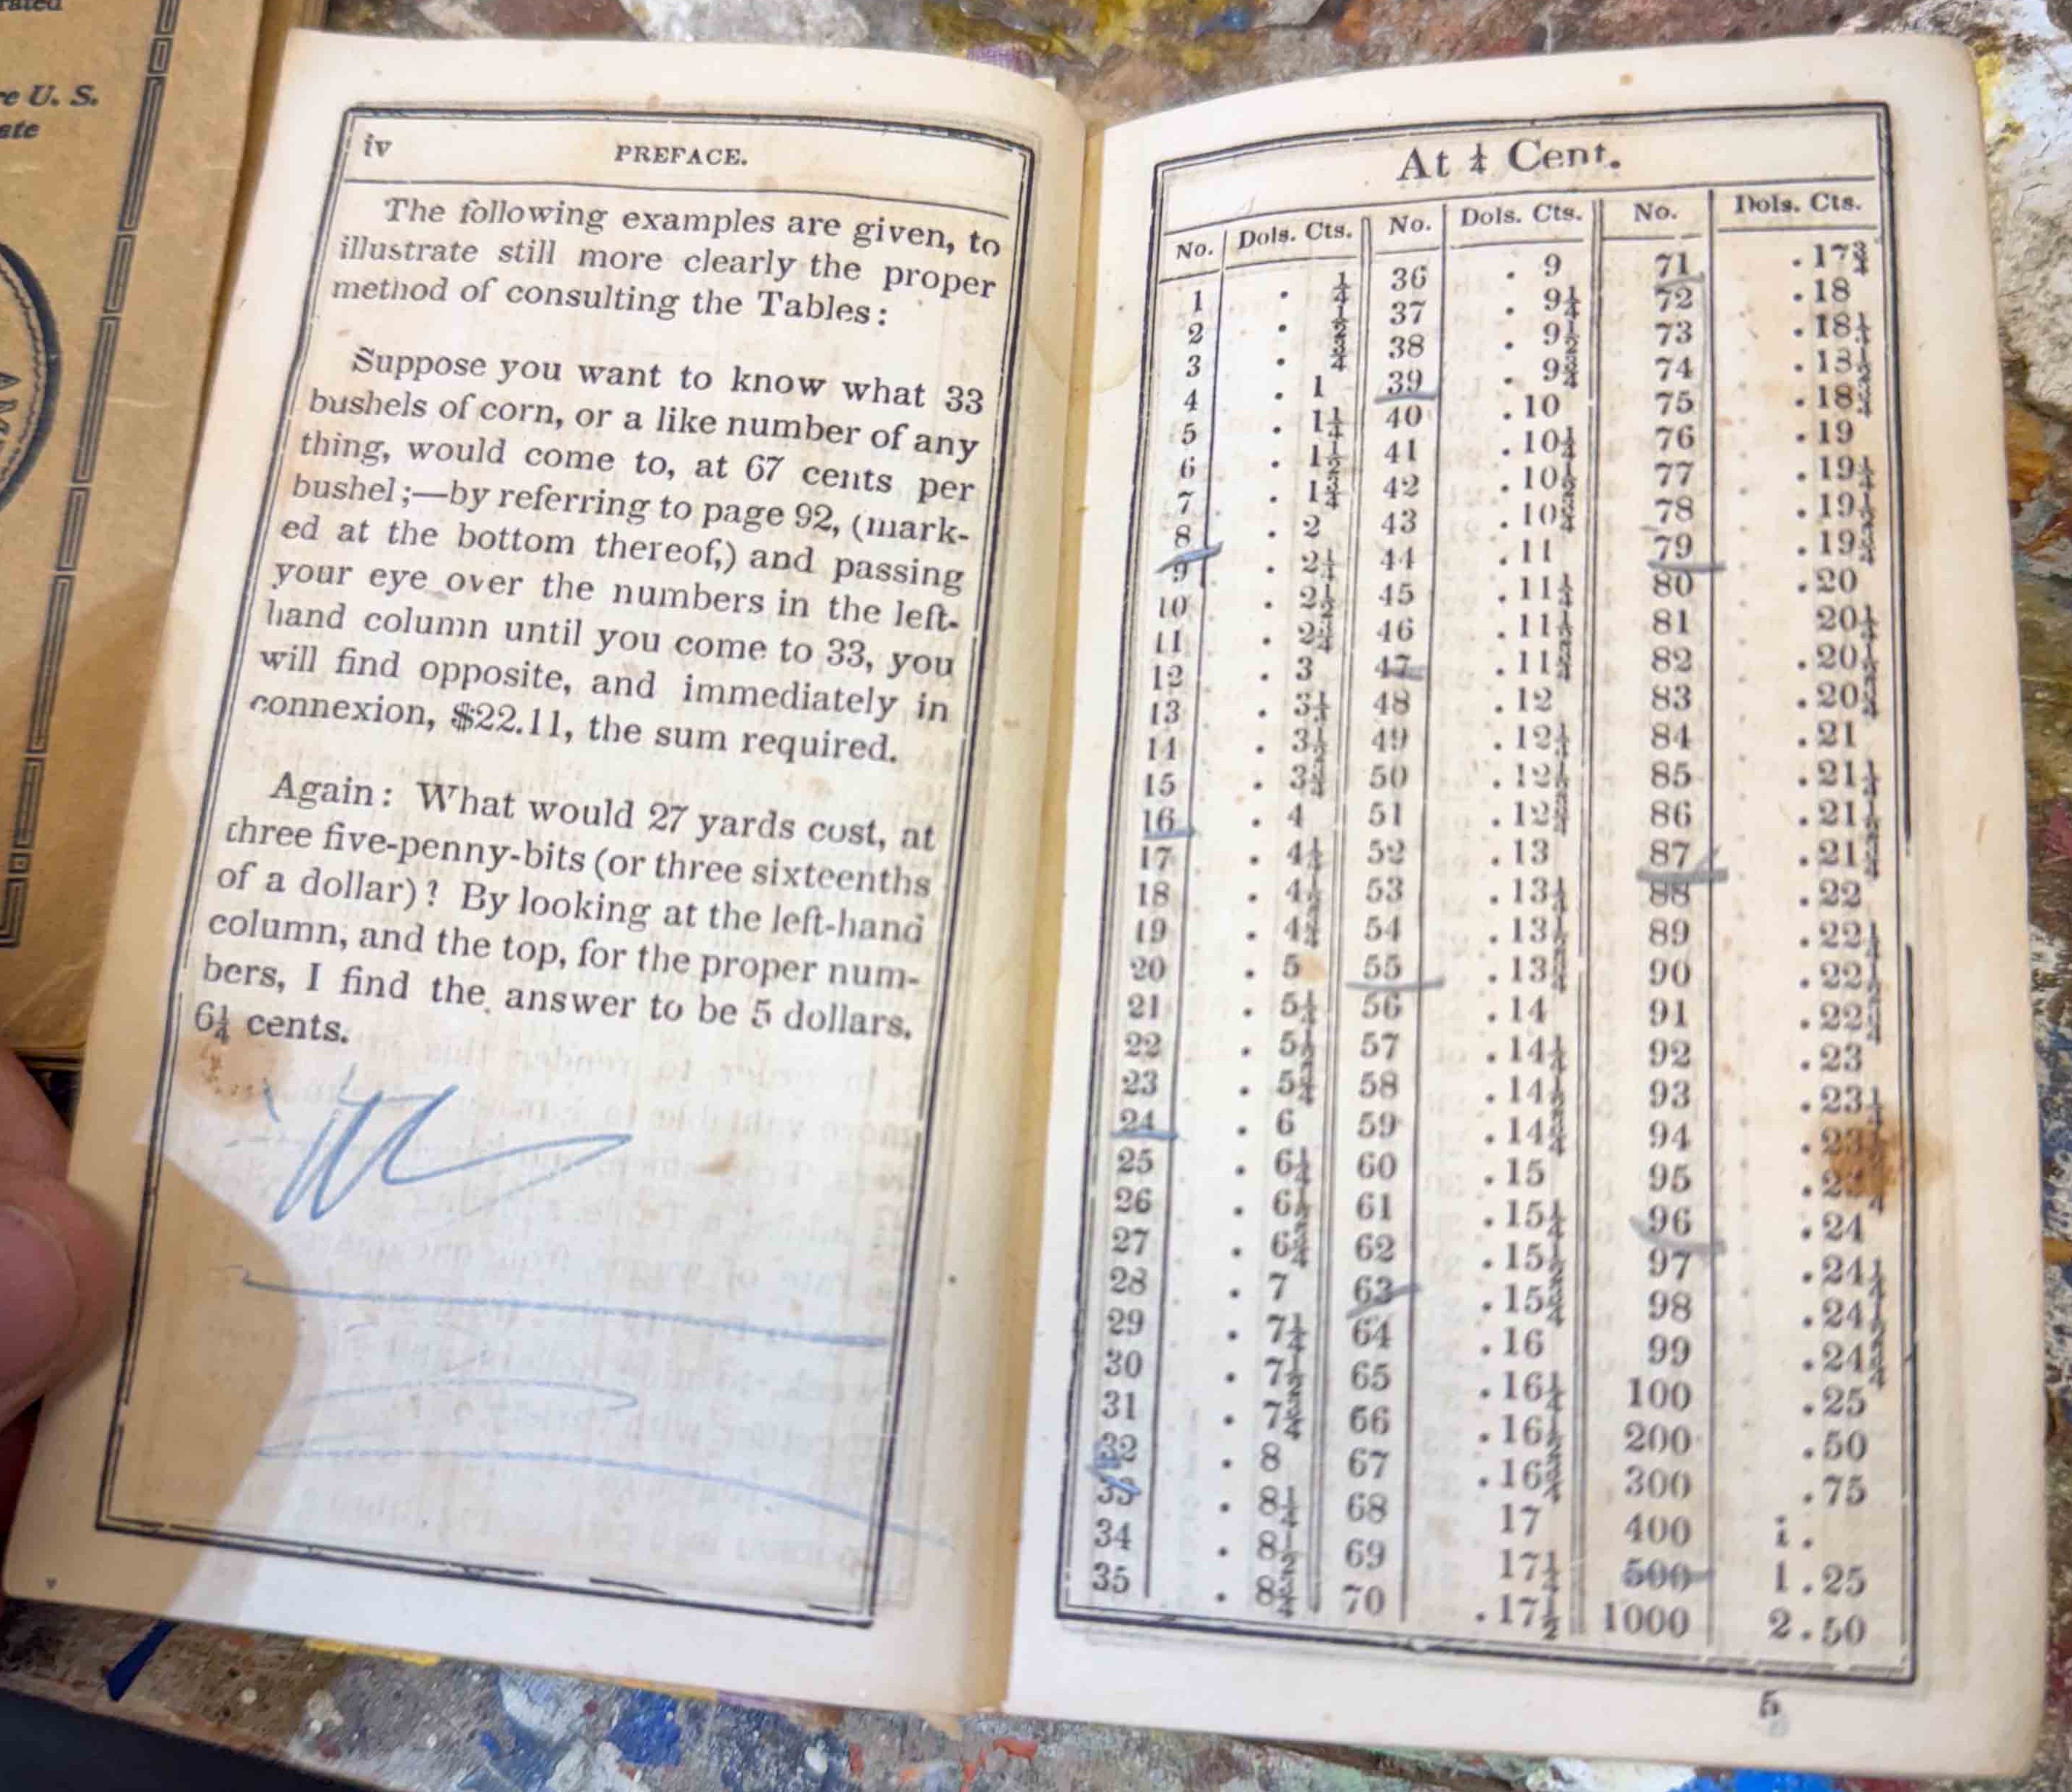 re U. S.
ate
iv
PREFACE.
The following examples are given, to
illustrate still more clearly the proper
method of consulting the Tables:
Suppose you want to know what 33
bushels of corn, or a like number of any
thing, would come to, at 67 cents per
bushel;—by referring to page 92, (mark-
ed at the bottom thereof,) and passing
your eye over the numbers in the left-
hand column until you come to 33, you
will find opposite, and immediately in
connexion, $22.11, the sum required.
Again: What would 27 yards cost, at
three five-penny-bits (or three sixteenths
of a dollar)? By looking at the left-hand
column, and the top, for the proper num-
bers, I find the answer to be 5 dollars.
6¼ cents.
At ¼ Cent.
No. Dols. Cts. No. Dols. Cts. No. Dols. Cts.
1 . ¼ 36 . 9 71 .17¾
2 . ½ 37 . 9¼ 72 .18
3 . ¾ 38 . 9½ 73 .18¼
4 . 1 39 . 9¾ 74 .18½
5 . 1¼ 40 .10 75 .18¾
6 . 1½ 41 .10¼ 76 .19
7 . 1¾ 42 .10½ 77 .19¼
8 . 2 43 .10¾ 78 .19½
9 . 2¼ 44 .11 79 .19¾
10 . 2½ 45 .11¼ 80 .20
11 . 2¾ 46 .11½ 81 20¼
12 . 3 47 .11¾ 82 .20½
13 . 3¼ 48 .12 83 .20¾
14 . 3½ 49 .12¼ 84 .21
15 . 3¾ 50 .12½ 85 .21¼
16 . 4 51 .12¾ 86 .21½
17 . 4¼ 52 .13 87 .21¾
18 . 4½ 53 .13¼ 88 .22
19 . 4¾ 54 .13½ 89 .22¼
20 . 5 55 .13¾ 90 .22½
21 . 5¼ 56 .14 91 .22¾
22 . 5½ 57 .14¼ 92 .23
23 . 5¾ 58 .14½ 93 .23¼
24 . 6 59 .14¾ 94 .23
25 . 6¼ 60 .15 95
26 . 6½ 61 .15¼ 96 .24
27 . 6¾ 62 .15½ 97 .24¼
28 . 7 63 .15¾ 98 .24½
29 . 7¼ 64 .16 99 .24¾
30 . 7½ 65 .16¼ 100 .25
31 . 7¾ 66 .16½ 200 .50
32 . 8 67 .16¾ 300 .75
33 . 8¼ 68 17 400 1.
34 . 8½ 69 17¼ 500 1.25
35 . 8¾ 70 .17½ 1000 2.50
5